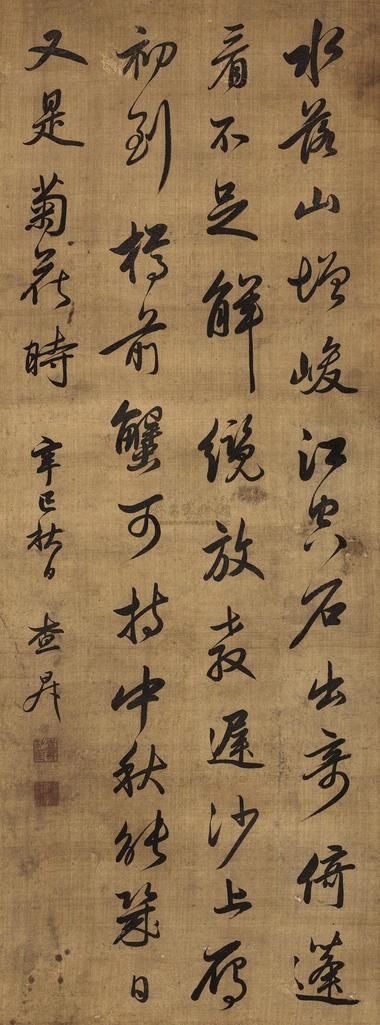 水落山增峻江空石出奇倚蓬
看不足解纜放教遲沙上雁
初到樽前蟹可持中秋能幾日
又是菊花時
辛巳秋日 查昇